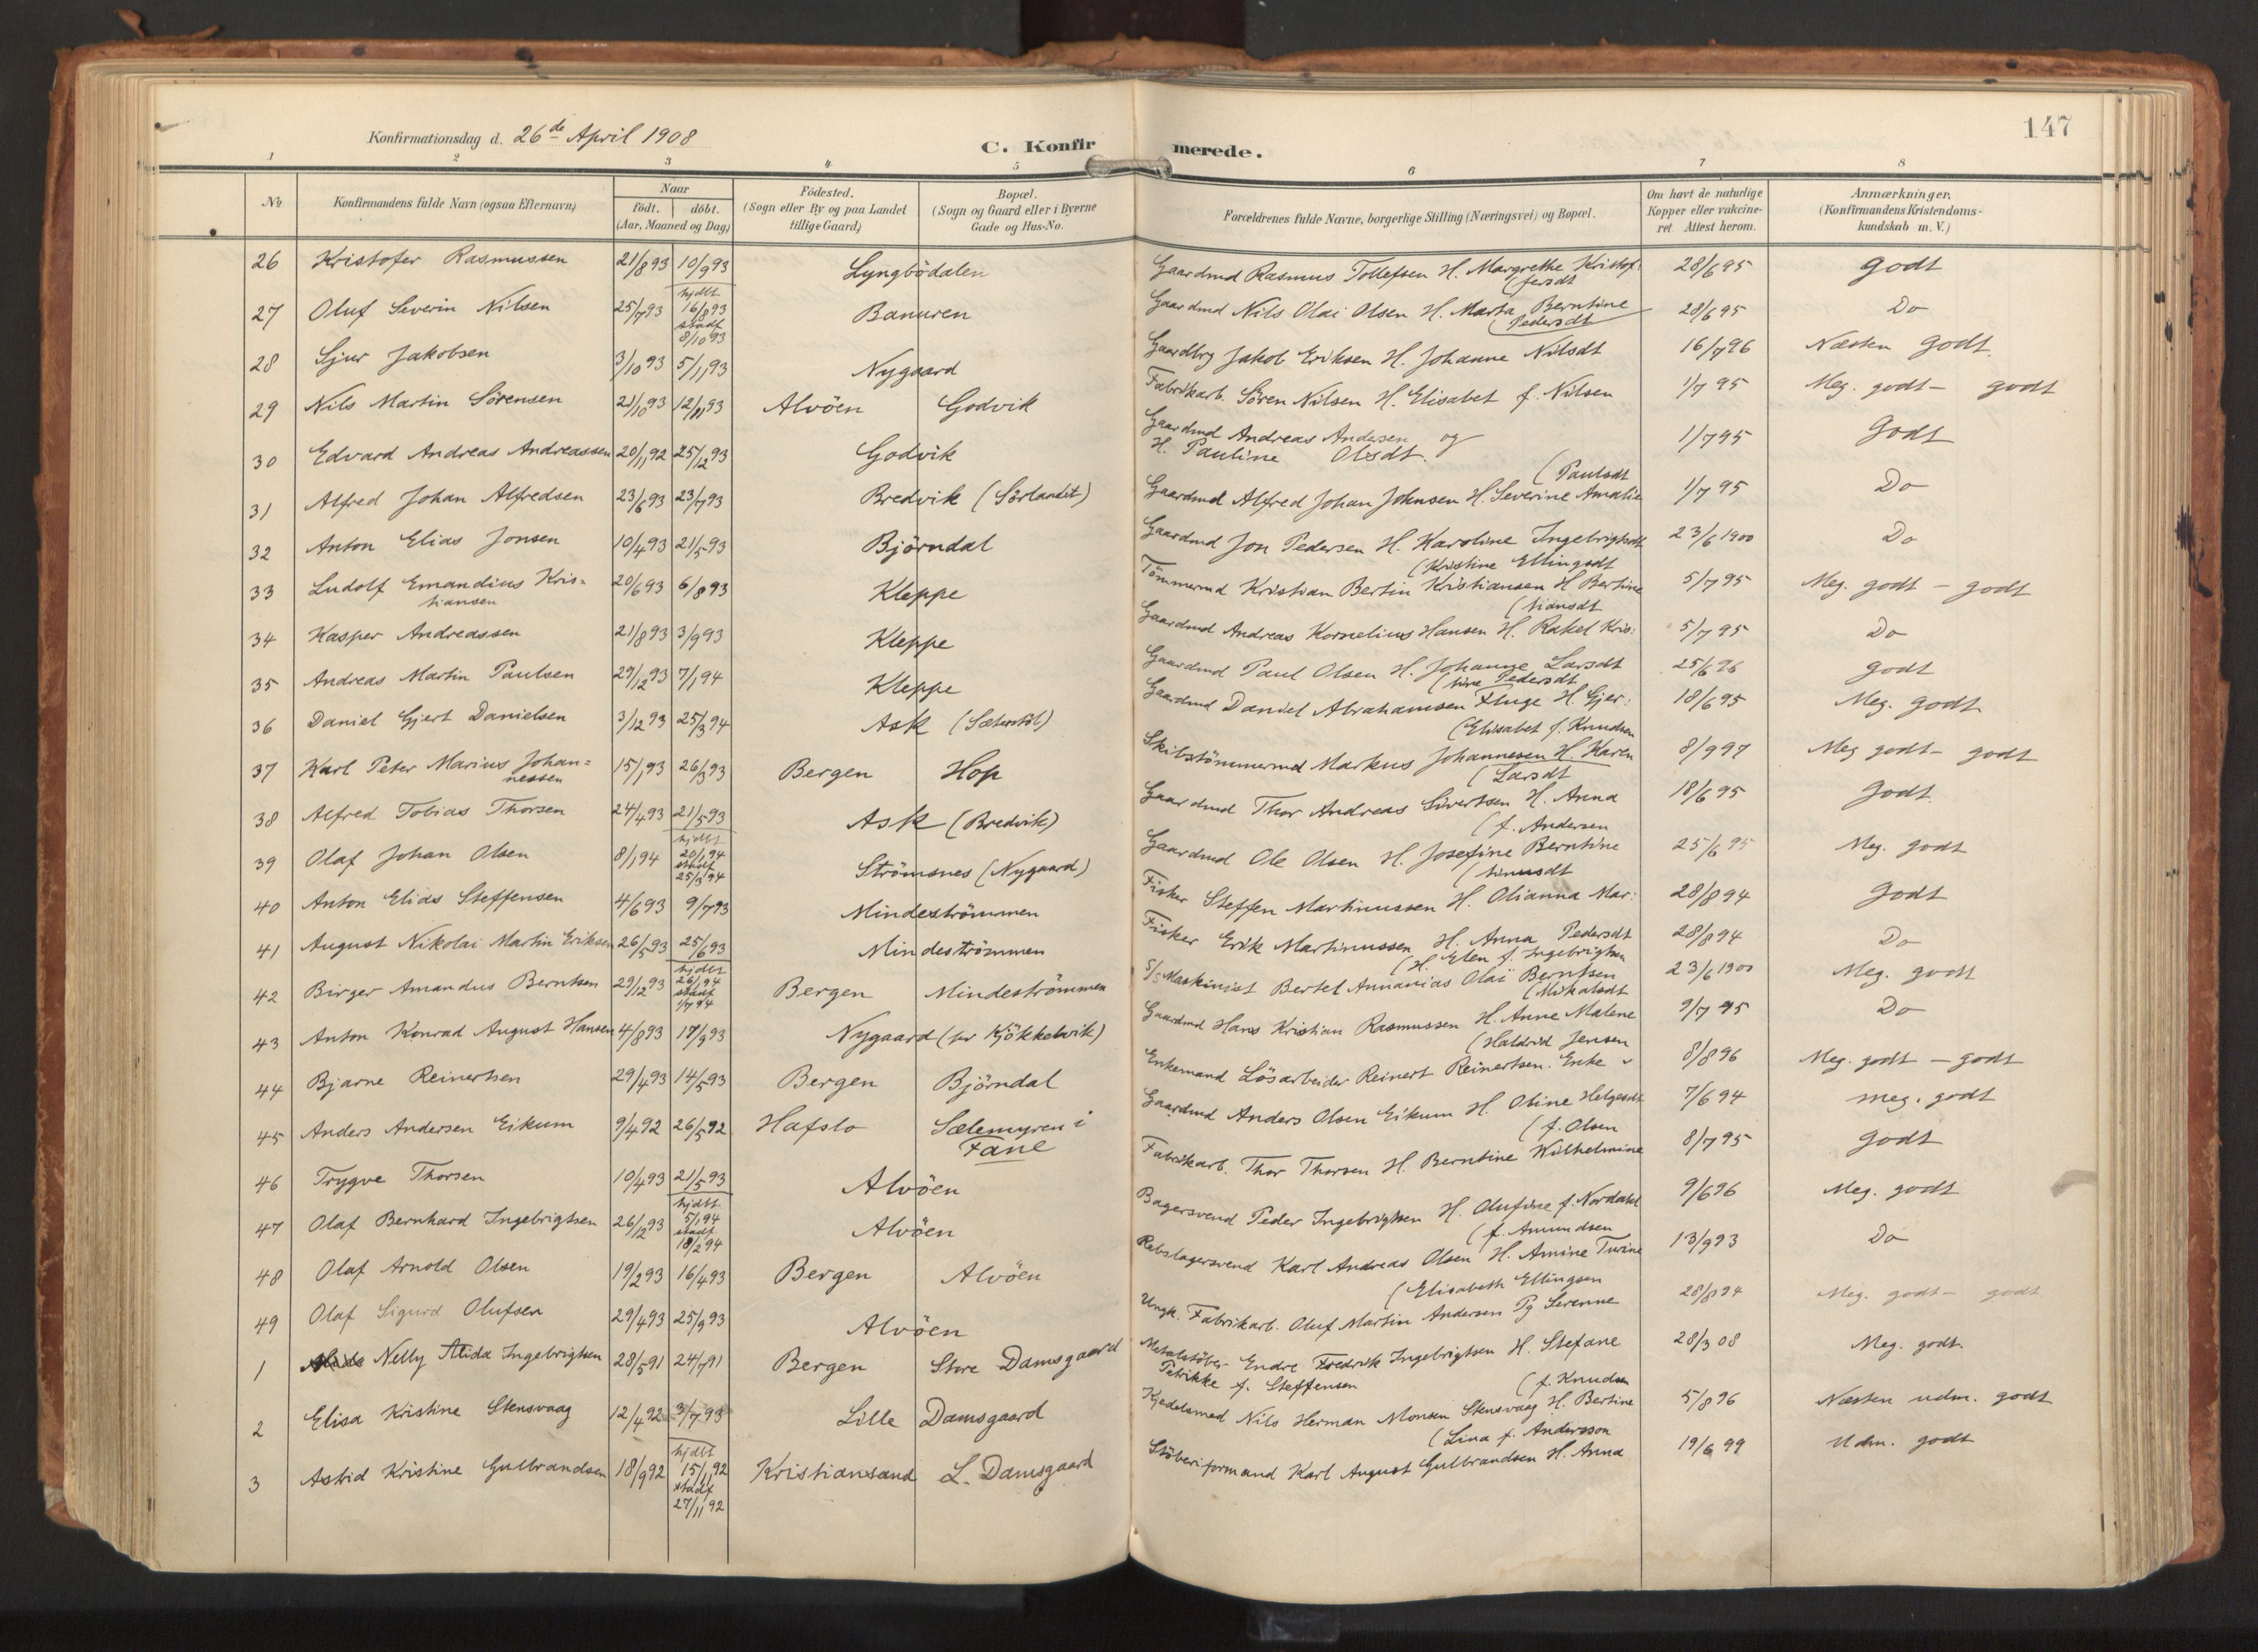 147
Konfirmationsdag d. 26de April 1908
C. Konfirmerede.
1 2 3 4 5 6 7 8
No
Konfirmandens fulde Navn (ogsaa Efternavn)
Naar
födt. döbt.
(Aar, Maaned og Dag)
Födested.
(Sogn eller By og paa Landet
tillige Gaard)
Bopæl.
(Sogn og Gaard eller i Byerne
Gade og Hus-No.
Forældrenes fulde Navne, borgerlige Stilling (Næringsvei) og Bopæl.
Om havt de naturlige
Kopper eller vakcine-
ret. Attest herom.
Anmærkninger,
(Konfirmandens Kristendoms-
kundskab m. V.)
26 Kristofer Rasmussen 21/8 93 10/9 93 Lyngbödalen Gaardmd Rasmus Tollefsen H. Margrethe Kristof: 28/6 95 godt
(fersdt
27 Oluf Severin Nilsen 25/7 93 hjdbt 16/8 93 stadf 8/10 93 Banuren Gaardmd Nils Olai Olsen H. Marta Berntine 28/6 95 Do
(Pedersdt
28 Sjur Jakobsen 3/10 93 5/11 93 Nygaard Gaardbrg Jakob Eriksen H. Johanne Nilsdt 16/7 96 Næsten godt.
29 Nils Martin Sörensen 21/10 93 12/11 93 Alvöen Godvik Fabrikarb. Sören Nilsen H. Elisabet f. Nilsen 1/7 95 Meg. godt - godt
30 Edvard Andreas Andreassen 20/11 92 25/12 93 Godvik Gaardmd Andreas Andersen og 1/7 95 Godt
H. Pauline Olsdt.
31 Alfred Johan Alfredsen 23/6 93 23/7 93 Bredvik (Sörlandet) Gaardmd Alfred Johan Johnsen H. Severine Amalie 1/7 95 Do
(Paulsdt
32 Anton Elias Jonsen 10/4 93 21/5 93 Björndal Gaardmd Jon Pedersen H. Karoline Ingebrigtsdt 23/6 1900 Do
33 Ludolf Emandius Kris= 20/6 93 6/8 93 Kleppe Tömmermd Kristian Bertin Kristiansen H Bertine 5/7 95 Meg. godt - godt
tiansen
(Kristine Ellingsdt
34 Kasper Andreassen 21/8 93 3/9 93 Kleppe Gaardmd Andreas Kornelius Hansen H. Rakel Kris: 5/7 95 Do
(tiansdt
35 Andreas Martin Paulsen 29/12 93 7/1 94 Kleppe Gaardmd Paul Olsen H. Johanne Larsdt 25/6 96 godt
36 Daniel Gjert Danielsen 3/12 93 25/3 94 Ask (Sæterstöl) Gaardmd Daniel Abrahamsen Fluge H Gjer: 18/6 95 Meg. godt
(tine Pedersdt
37 Karl Peter Marius Johan= 15/1 93 26/3 93 Bergen Hop Skibstömmermd Markus Johannesen H. Karen 8/9 97 Meg godt - godt
nessen
(Elisabet f. Knudsen
38 Alfred Tobias Thorsen 24/4 93 21/5 93 Ask (Bredvik) Gaardmd Thor Andreas Sivertsen H. Anna 18/6 95 Godt.
(Larsdt
39 Olaf Johan Olsen 8/1 94 hjdbt 20/1 94 stadf 25/3 94 Strömsnes (Nygaard) Gaardmd Ole Olsen H. Josefine Berntine 25/6 95 Meg. godt
(f. Andersen
40 Anton Elias Steffensen 4/6 93 9/7 93 Mindeströmmen Fisker Steffen Martinussen H. Olianna Mar: 28/8 94 Godt
(tinusdt
41 August Nikolai Martin Eriksen 26/5 93 25/6 93 Mindeströmmen Fisker Erik Martinussen H. Anna Pedersdt 28/8 94 Do
42 Birger Amandus Berntsen 29/12 93 hjdbt 26/1 94 stadf 1/7 94 Bergen Mindeströmmen S/S Maskinist Bertel Annanias Olai Berntsen 23/6 1900 Meg. godt
(H. Elen f. Ingebrigtsen
43 Anton Konrad August Hansen 4/8 93 17/9 93 Nygaard (pr Kjökkelvik) Gaardmd Hans Kristian Rasmussen H. Anne Malene 9/7 95 Do
(Mikalsdt
44 Bjarne Reinertsen 29/4 93 14/5 93 Bergen Björndal Enkemand Lösarbeider Reinert Reinertsen. Enke 8/8 96 Meg. godt - godt
(Haldrid Jensen
45 Anders Andersen Eikum 9/4 92 26/5 92 Hafslo Sælemyren i Fane Gaardmd Anders Olsen Eikum H. Oline Helgesdt 7/6 94 meg. godt
46 Trygve Thorsen 10/4 93 21/5 93 Alvöen Fabrikarb. Thor Thorsen H. Berntine Wilhelmine 8/7 95 godt
(f. Olsen
47 Olaf Bernhard Ingebrigtsen 26/12 93 hjdbt. 5/1 94 stadf. 18/2 94 Alvöen Bagersvend Peder Ingebrigtsen H. Olufine f. Nordahl 9/6 96 Meg. godt
48 Olaf Arnold Olsen 19/2 93 16/4 93 Bergen Alvöen Rebslagersvend Karl Andreas Olsen H. Amine Turine 13/9 93 Do
(f. Amundsen
49 Olaf Sigurd Olufsen 29/4 93 25/9 93 Alvöen Ungk. Fabrikarb. Oluf Martin Andersen Pg Serenne 28/8 94 Meg. godt - godt
(Elisabeth Ellingsen
1 Nelly Alida Ingebrigtsen 28/5 91 24/7 91 Bergen Store Damsgaard Metalstöber Endre Fredrik Ingebrigtsen H. Stefane 28/3 08 Meg. godt.
Petrikke f. Steffensen
2 Elisa Kristine Stensvaag 12/4 92 3/7 93 Lille Damsgaard Kjedelsmed Nils Herman Monsen Stensvaag H. Bertine 5/8 96 Næsten udm. godt
(f. Knudsen
3 Astrid Kristine Gulbrandsen 18/9 92 hjdbt 15/11 92 stadf 27/11 92 Kristiansand L. Damsgaard Stöberiformand Karl August Gulbrandsen H. Anna 19/6 99 Udm. godt
(Lina f. Andersson